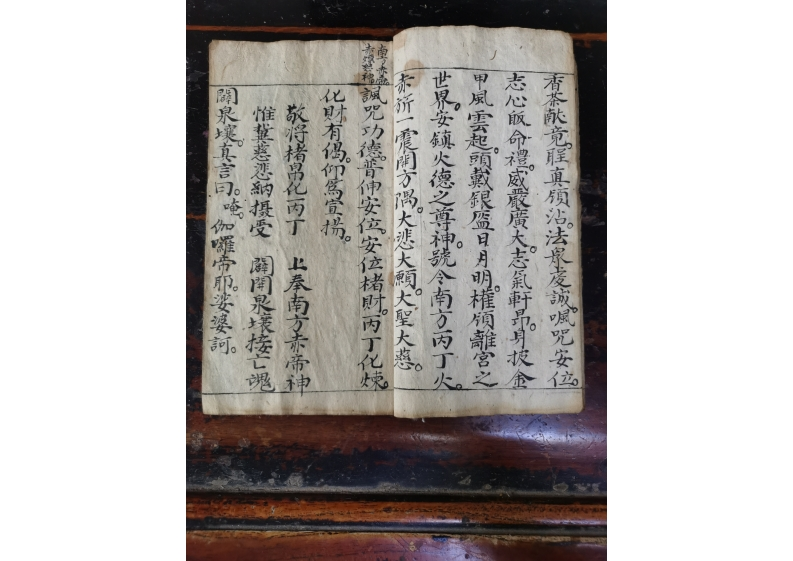 香茶献竟。聖真領沾。法衆虔誠。諷咒安位。
志心皈命禮。威嚴廣大。志氣軒昂。身披金
甲風雲起。頭戴銀盔日月明。權領離宮之
世界。安鎮火德之尊神。號令南方丙丁火。
赤斾一震開方隅。大悲大願。大聖大慈。
諷咒功德。普伸安位。安位楮財。丙丁化煉。
化財有偈。仰篤宣揚。
敬将楮帛化丙丁 上奉南方赤帝神
惟冀慈悲納攝受 闢開泉壤接亡魂
闢泉壤。真言曰。唵。伽囉帝耶。娑婆訶。